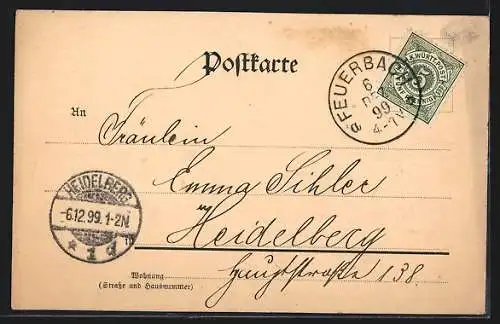 Postkarte
K. WÜRTT. POST
5
FEUERBACH
6
DE
99
4-
An
Fräulein
Emma Sihler
Heidelberg
Hauptstraße 138.
HEIDELBERG
-6.12.99.1-2N.
* 1 d
Wohnung
(Straße und Hausnummer)